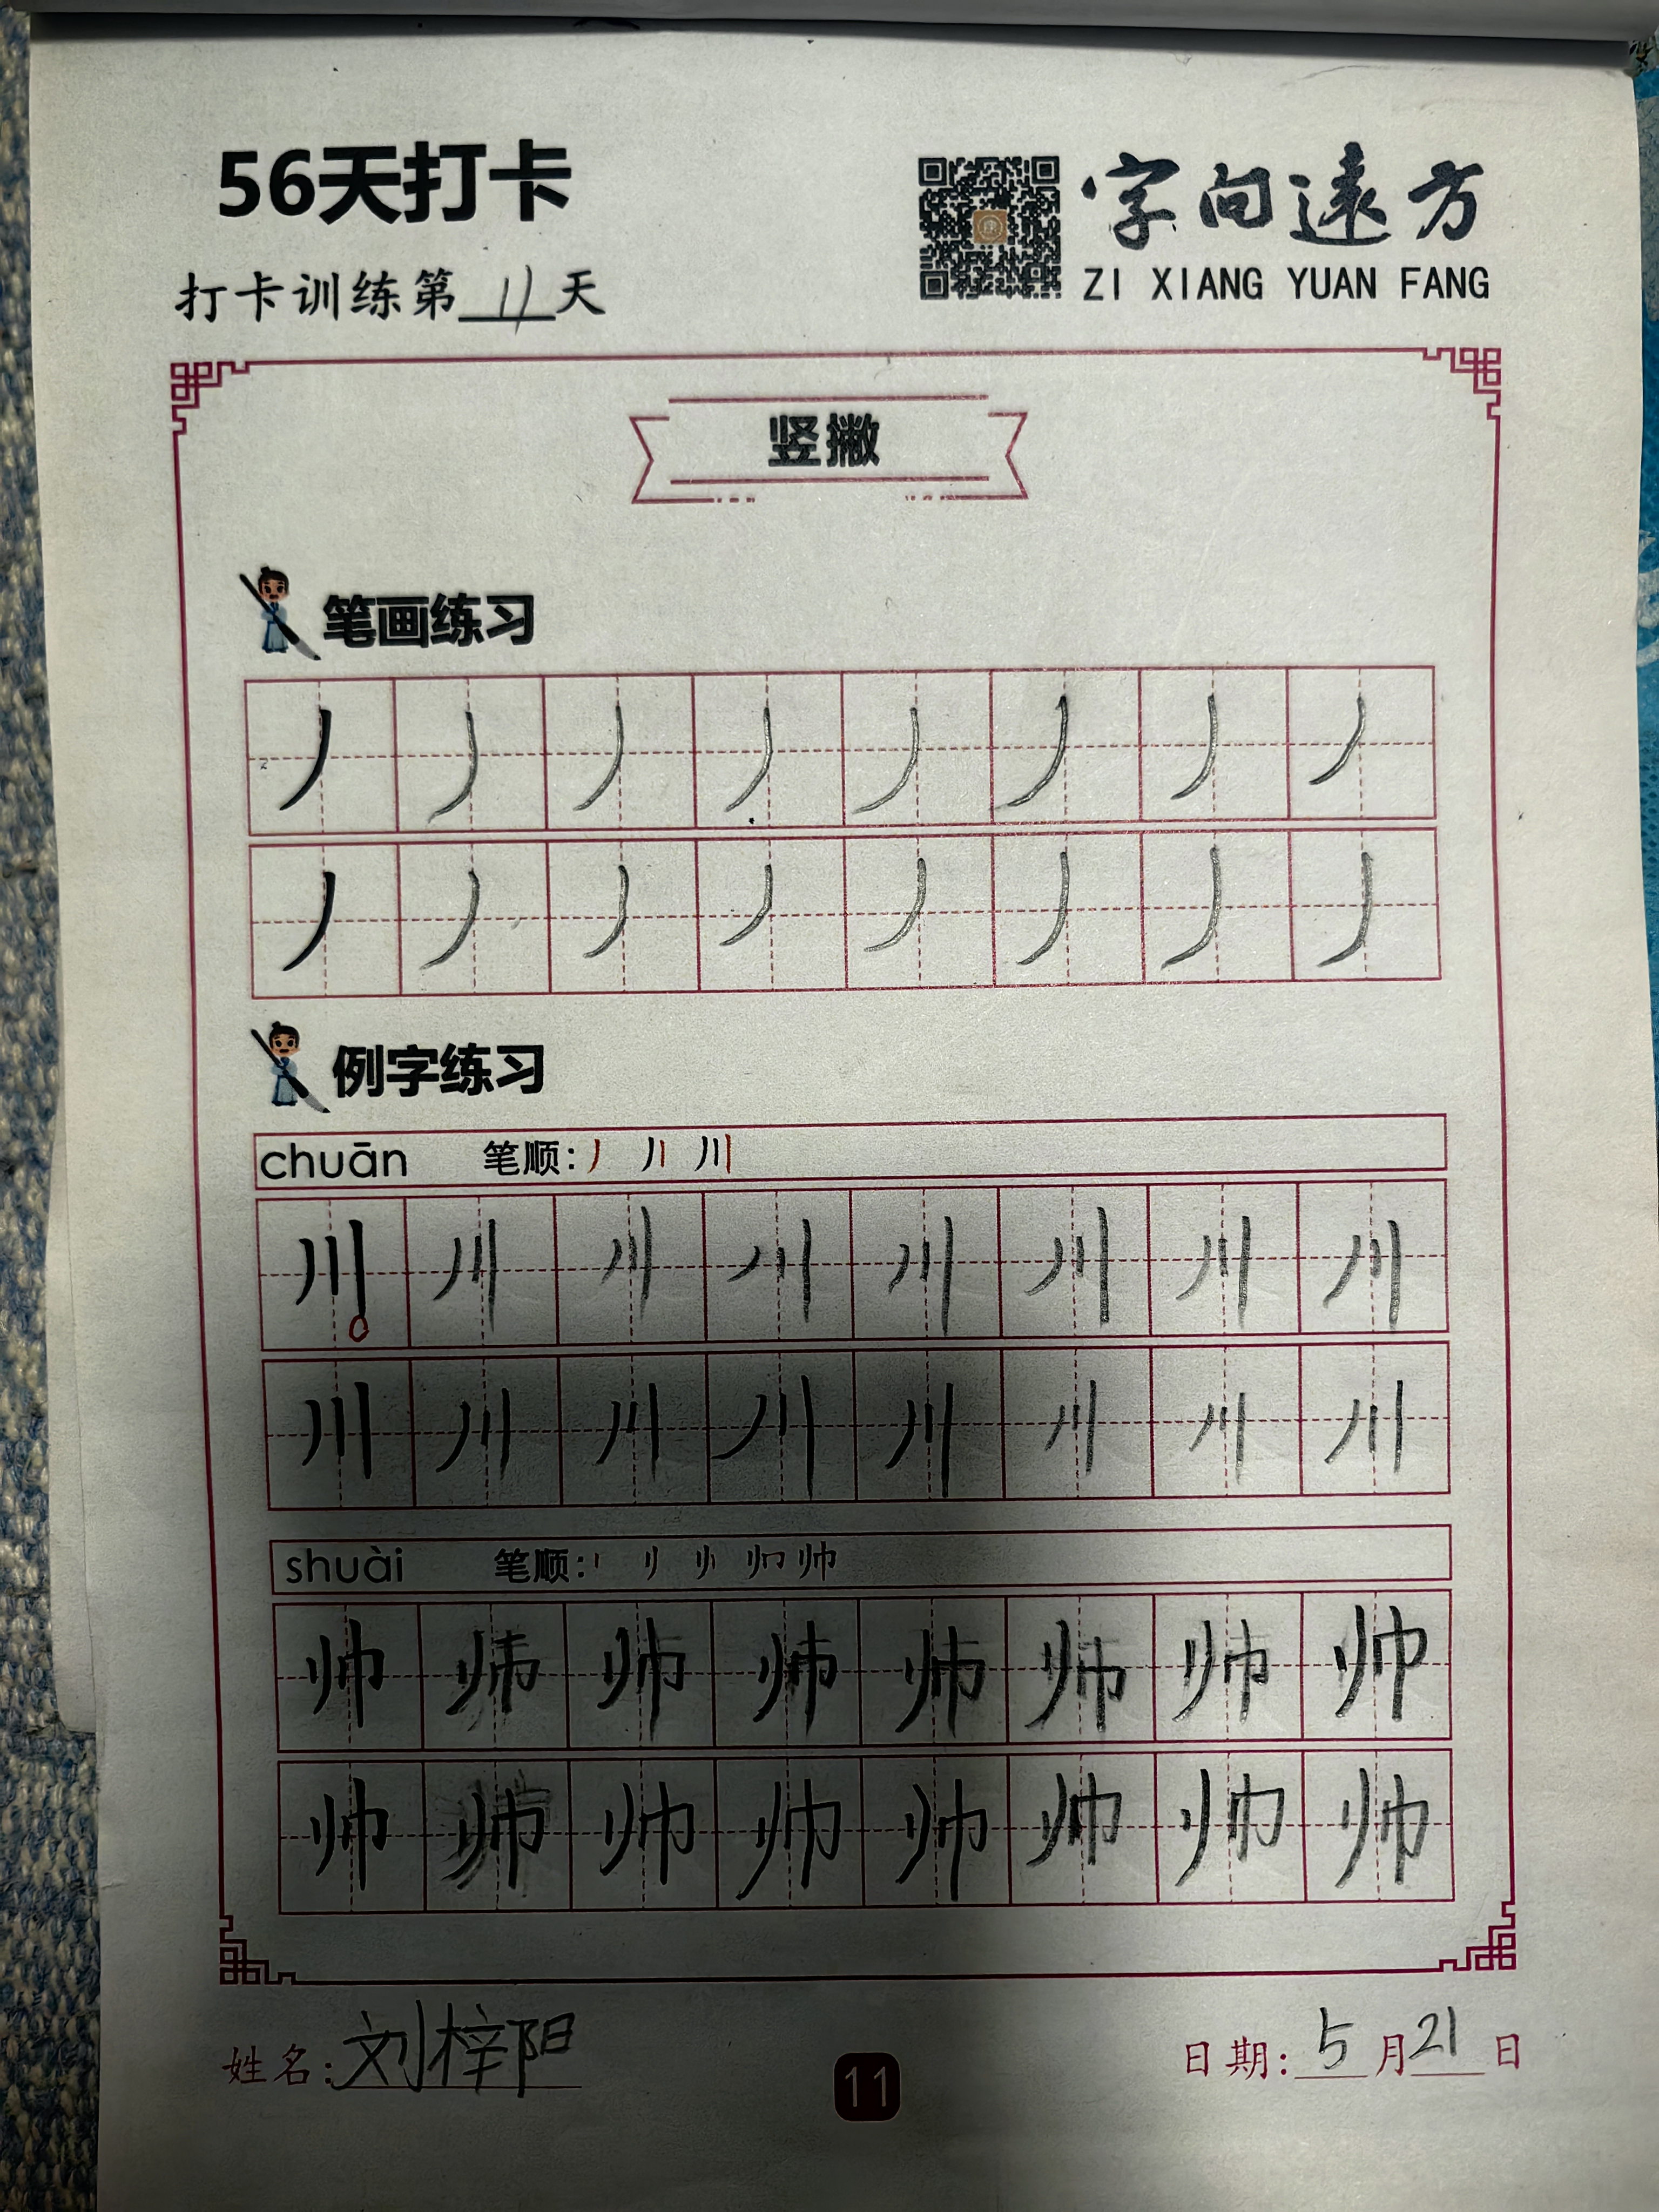 56天打卡
字向遠方
ZI XIANG YUAN FANG
打卡训练第11天
竖撇
笔画练习
丿丿丿丿丿丿丿丿
丿丿丿丿丿丿丿丿
例字练习
chuān 笔顺: 丿 丿丨 川
川川川川川川川川
川川川川川川川川
shuài 笔顺: 丨 刂 帅
帅帅帅帅帅帅帅帅
帅帅帅帅帅帅帅帅
姓名:刘梓阳
11
日期:5月21日